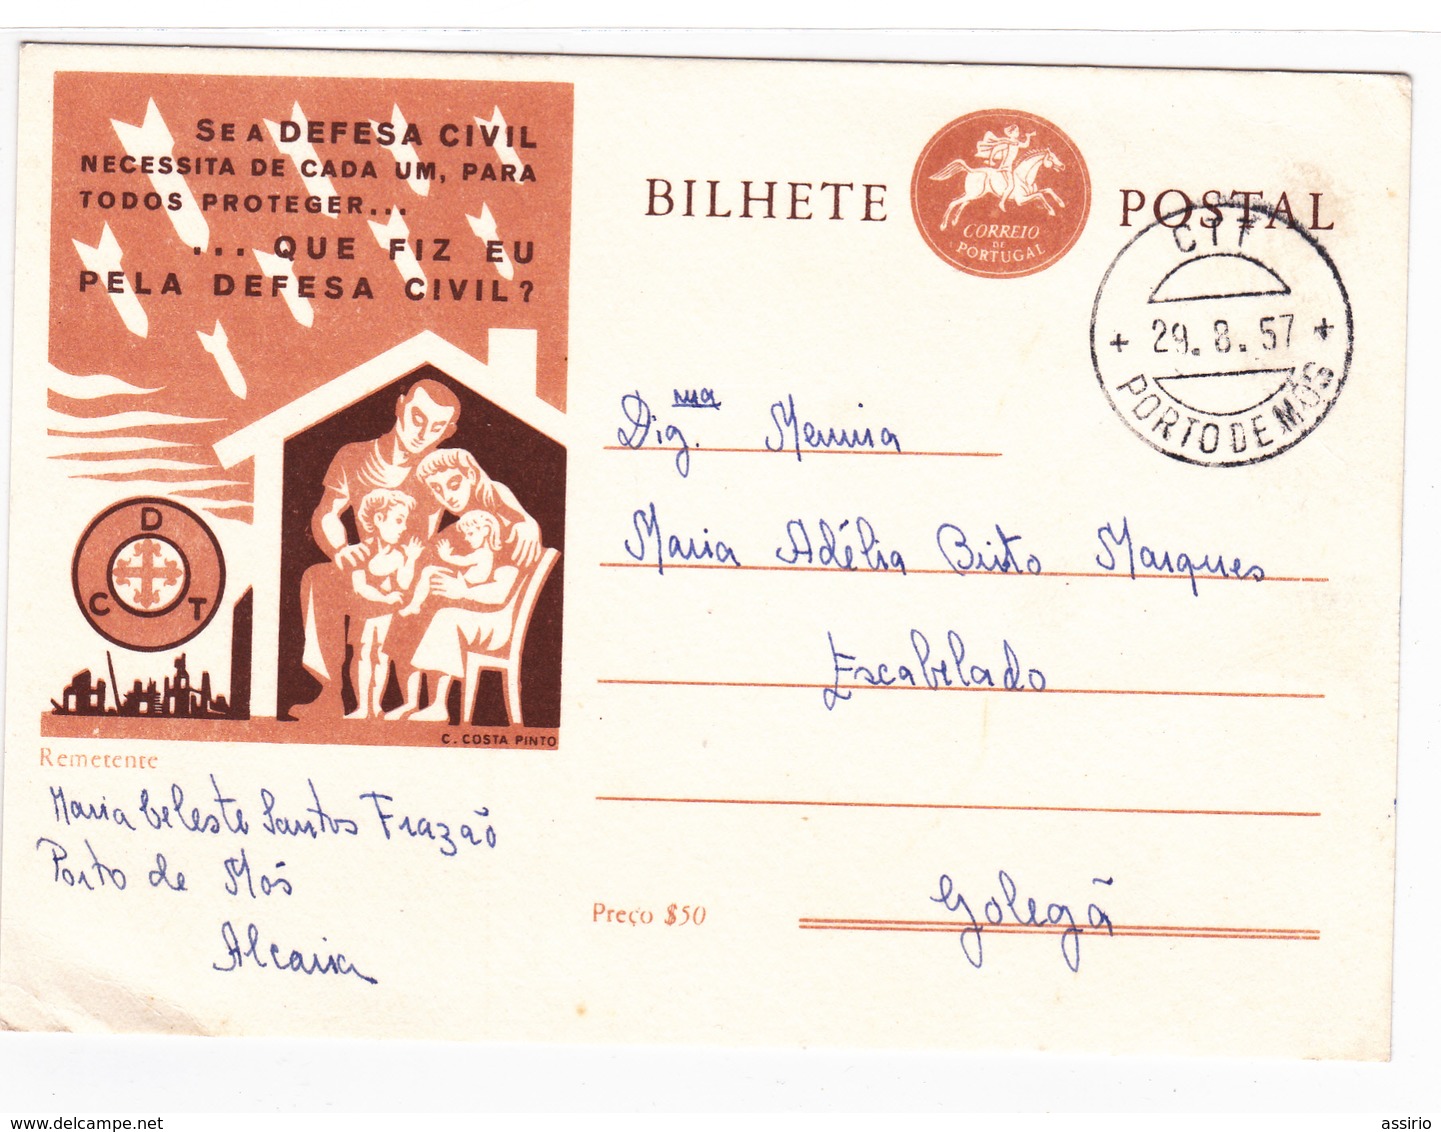 SE A DEFESA CIVIL
NECESSITA DE CADA UM, PARA
TODOS PROTEGER...
...QUE FIZ EU
PELA DEFESA CIVIL?
D
C T
C. COSTA PINTO
BILHETE POSTAL
CORREIO
DE
PORTUGAL
CTT
+ 29.8.57 +
PORTO DE MÓS
Dig.ma Menina
Maria Adélia Brito Marques
Escabelado
Golegã
Preço $50
Remetente
Maria Celeste Santos Frazão
Porto de Mós
Alcaria
www.delcampe.net
assirio